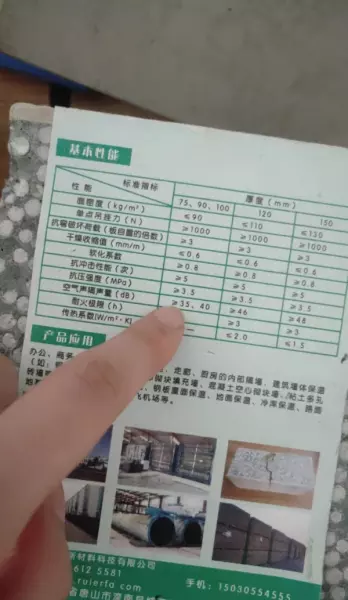 基本性能
标准指标 厚度(mm)
性能 75、90、100 120 150
面密度(kg/m²) ≤90 ≤110 ≤130
单点吊挂力(N) ≥1000 ≥1000 ≥1000
抗弯破坏荷载(板自重的倍数) ≥3 ≥3 ≥3
干燥收缩值(mm/m) ≤0.6 ≤0.6 ≤0.6
软化系数 ≥0.8 ≥0.8 ≥0.8
抗冲击性能(次) ≥5 ≥5 ≥5
抗压强度(MPa) ≥3.5 ≥3.5 ≥3.5
空气声隔声量(dB) ≥35、40 ≥46 ≥48
耐火极限(h) ≥3 ≥3
传热系数(W/m²·K) — ≤2.0 ≤1.5
产品应用
办公，商 走廊、厨房的内部隔墙，建筑墙体保温
(如: 砌块填充墙、混凝土空心砌块墙、粘土多孔
砖墙 钢板屋面保温、地面保温、冷库保温、路面
飞机场等。
新材料科技有限公司
612 5581 手机：15030554555
.ruierfa.co
省唐山市滦南县